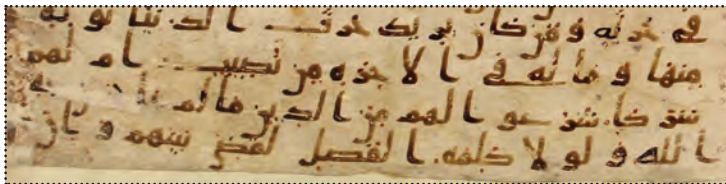 في حرثه و من كان يريد حرث الدنيا نوته
منها و ما له في الاخره من نصيب ام لهم
شركا شرعوا لهم من الدين ما لم
الله و لو لا كلمه الفصل لقضي بينهم و ان